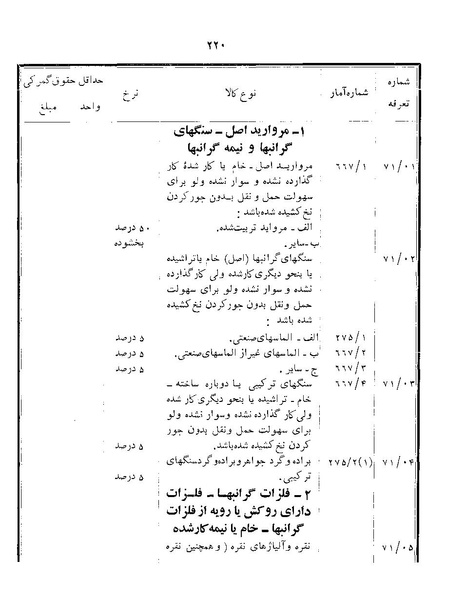 ۲۲۰
شماره تعرفه | شماره آمار | نوع کالا | نرخ | حداقل حقوق گمرکی
واحد | مبلغ
۱ـ مروارید اصل ـ سنگهای
گرانبها و نیمه گرانبها
۷۱/۰۱ | ۶۶۷/۱ | مروارید اصل ـ خام یا کار شدهٔ کار
گذارده نشده و سوار نشده ولو برای
سهولت حمل و نقل بدون جور کردن
نخ کشیده شده باشد :
الف ـ مروارد تربیت شده. | ۵۰ درصد
ب ـ سایر. | بخشوده
۷۱/۰۲ | سنگهای گرانبها (اصل) خام یا تراشیده
یا بنحو دیگری کارشده ولی کار گذارده
نشده و سوار نشده ولو برای سهولت
حمل ونقل بدون جور کردن نخ کشیده
شده باشد :
۲۷۵/۱ | الف ـ الماسهای صنعتی. | ۵ درصد
۶۶۷/۲ | ب ـ الماسهای غیر از الماسهای صنعتی. | ۵ درصد
۶۶۷/۳ | ج ـ سایر. | ۵ درصد
۷۱/۰۳ | ۶۶۷/۴ | سنگهای ترکیبی یا دوباره ساخته ـ
خام ـ تراشیده یا بنحو دیگری کار شده
ولی کار گذارده نشده وسوار نشده ولو
برای سهولت حمل ونقل بدون جور
کردن نخ کشیده شده باشد. | ۵ درصد
۷۱/۰۴ | ۲۷۵/۲(۱) | براده وگرد جواهر وبراده وگرد سنگهای
ترکیبی. | ۵ درصد
۲ ـ فلزات گرانبها ـ فلزات
دارای روکش یا رویه از فلزات
گرانبها ـ خام یا نیمه کارشده
۷۱/۰۵ | نقره وآلیاژهای نقره ( و همچنین نقره